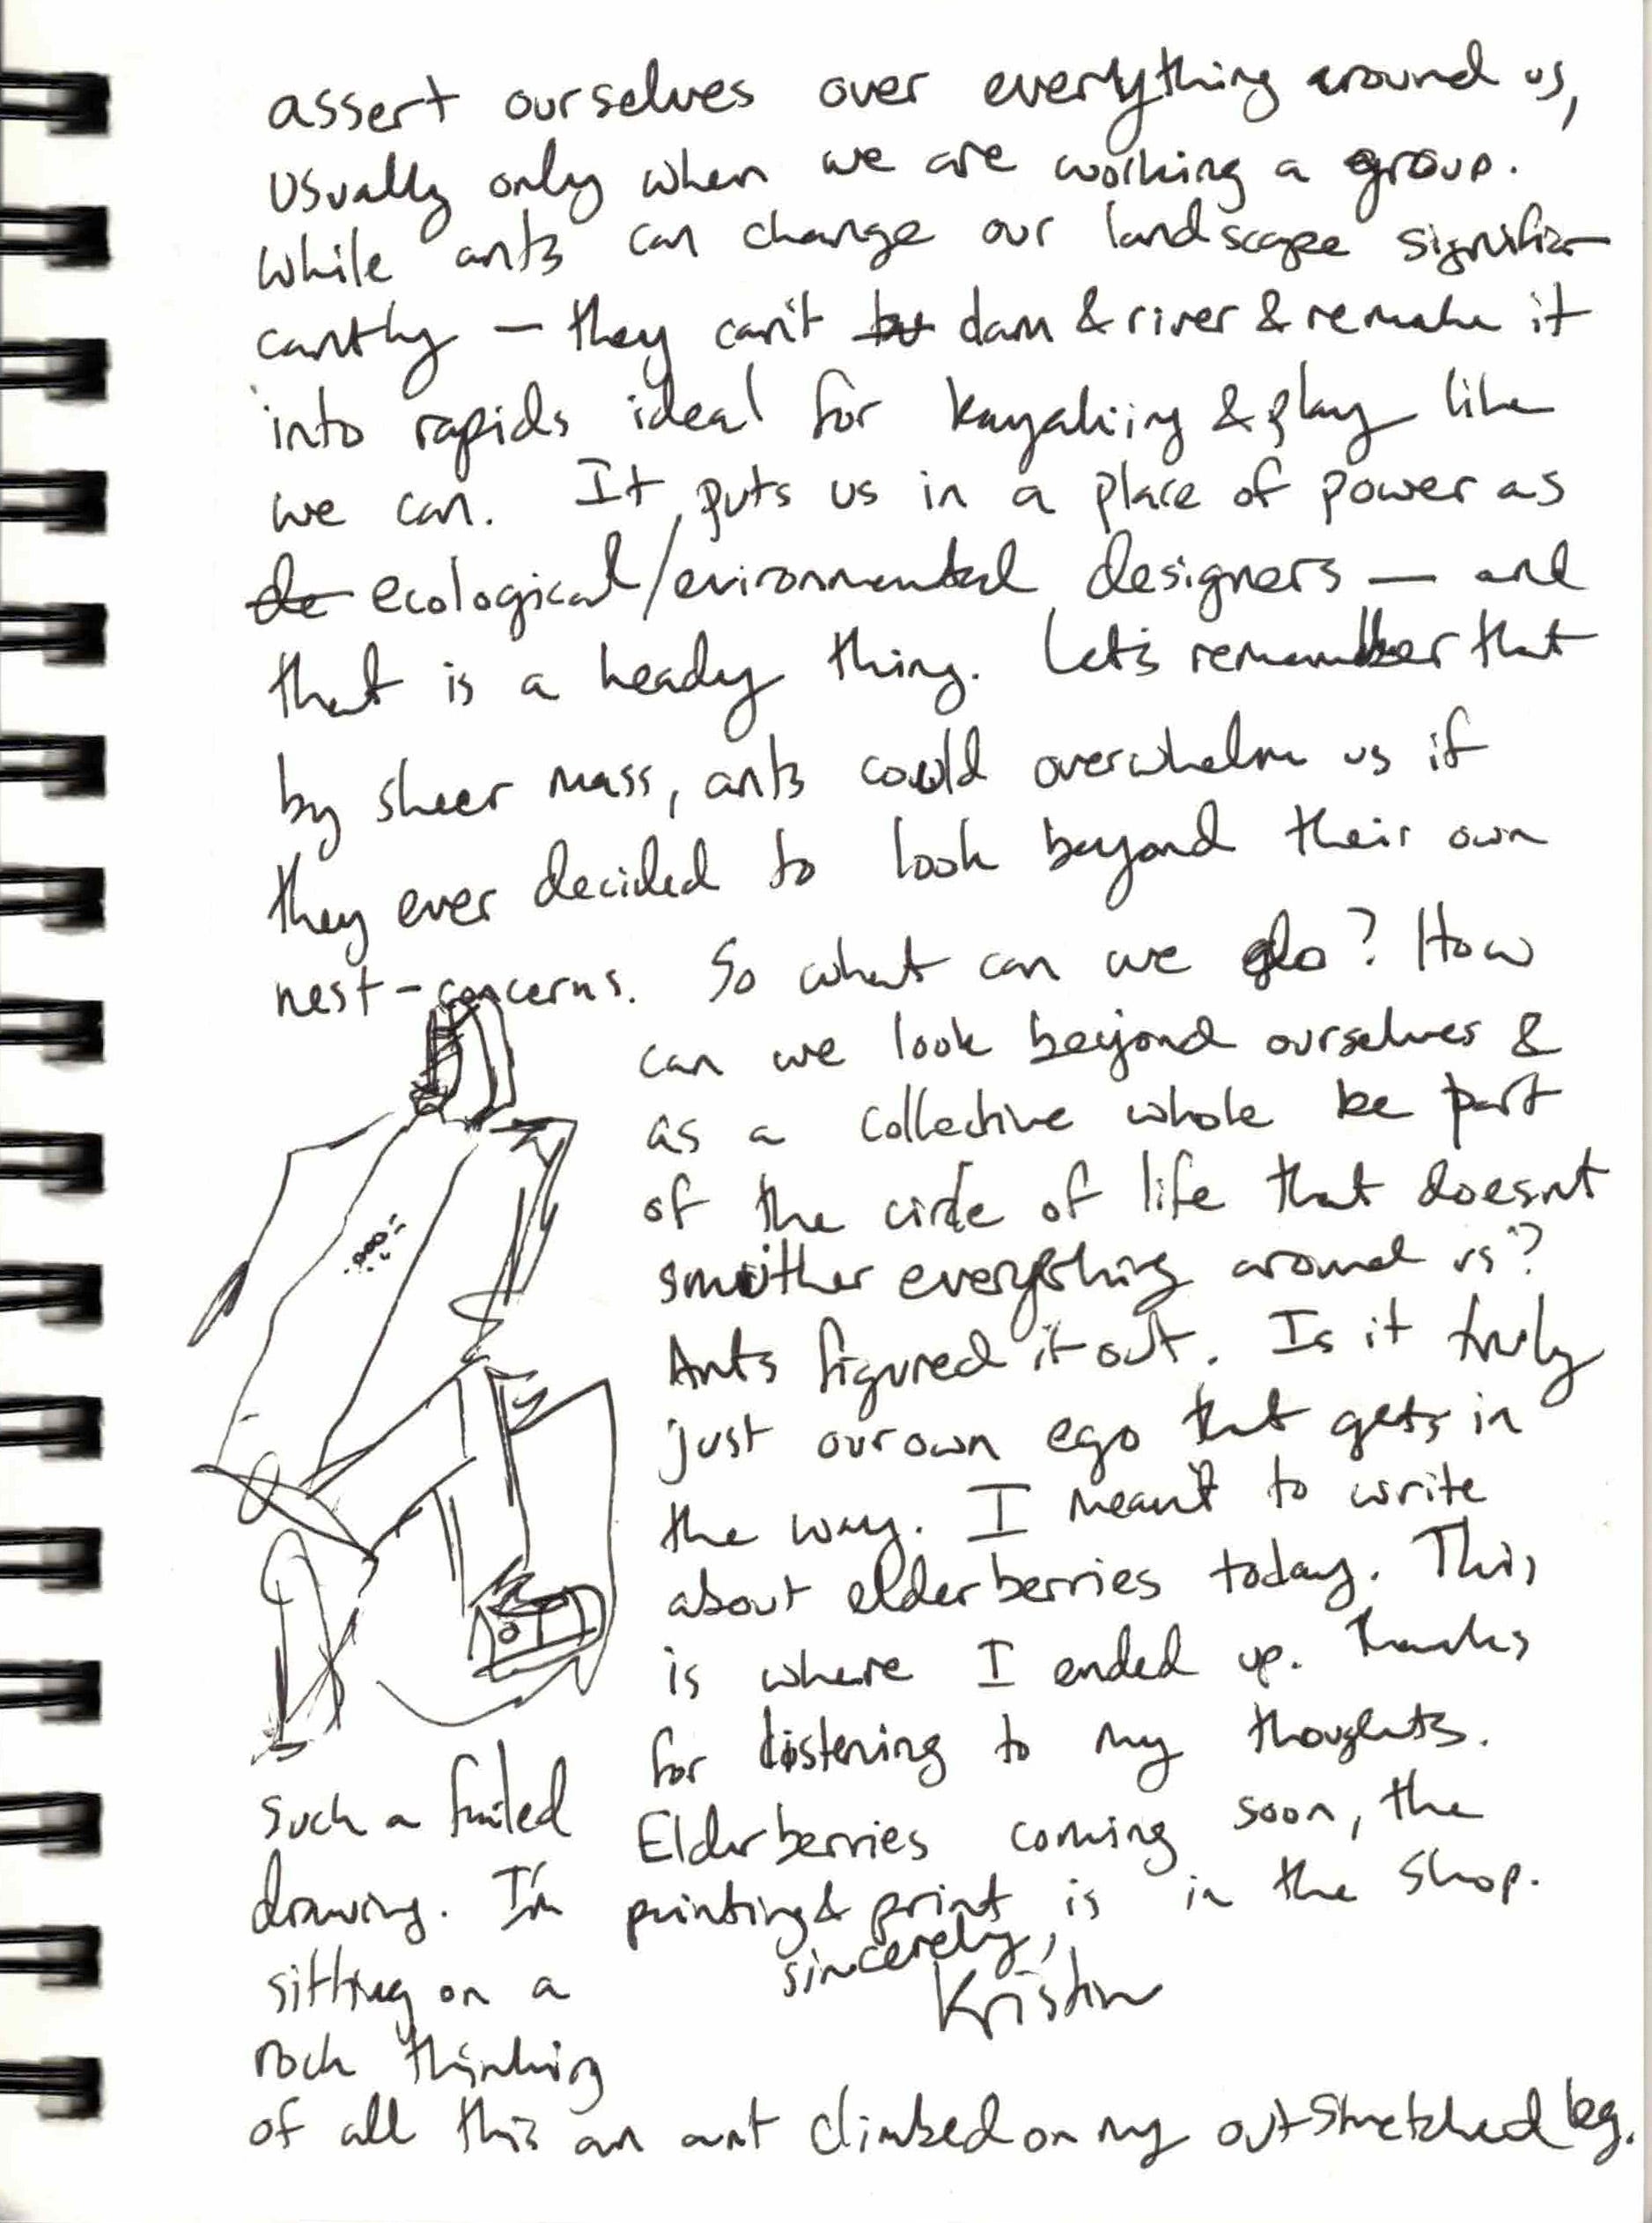 assert ourselves over everything around us,
usually only when we are working a group.
While ants can change our landscape signifi-
cantly — they can't but dam & river & remake it
into rapids ideal for kayaking & play like
we can. It puts us in a place of power as
de ecological/evironmental designers — and
that is a heady thing. Let's remember that
by sheer mass, ants could overwhelm us if
they ever decided to look beyond their own
nest-concerns. So what can we do? How
can we look beyond ourselves &
as a collective whole be part
of the circle of life that doesn't
smother everything around us?
Ants figured it out. Is it truly
just our own ego that gets in
the way. I meant to write
about elderberries today. This
is where I ended up. Thanks
for listening to my thoughts.
Elderberries coming soon, the
painting & print is in the shop.
sincerely,
Kristin
such a failed
drawing. I'm
sitting on a
rock thinking
of all this an ant climbed on my outstretched leg.